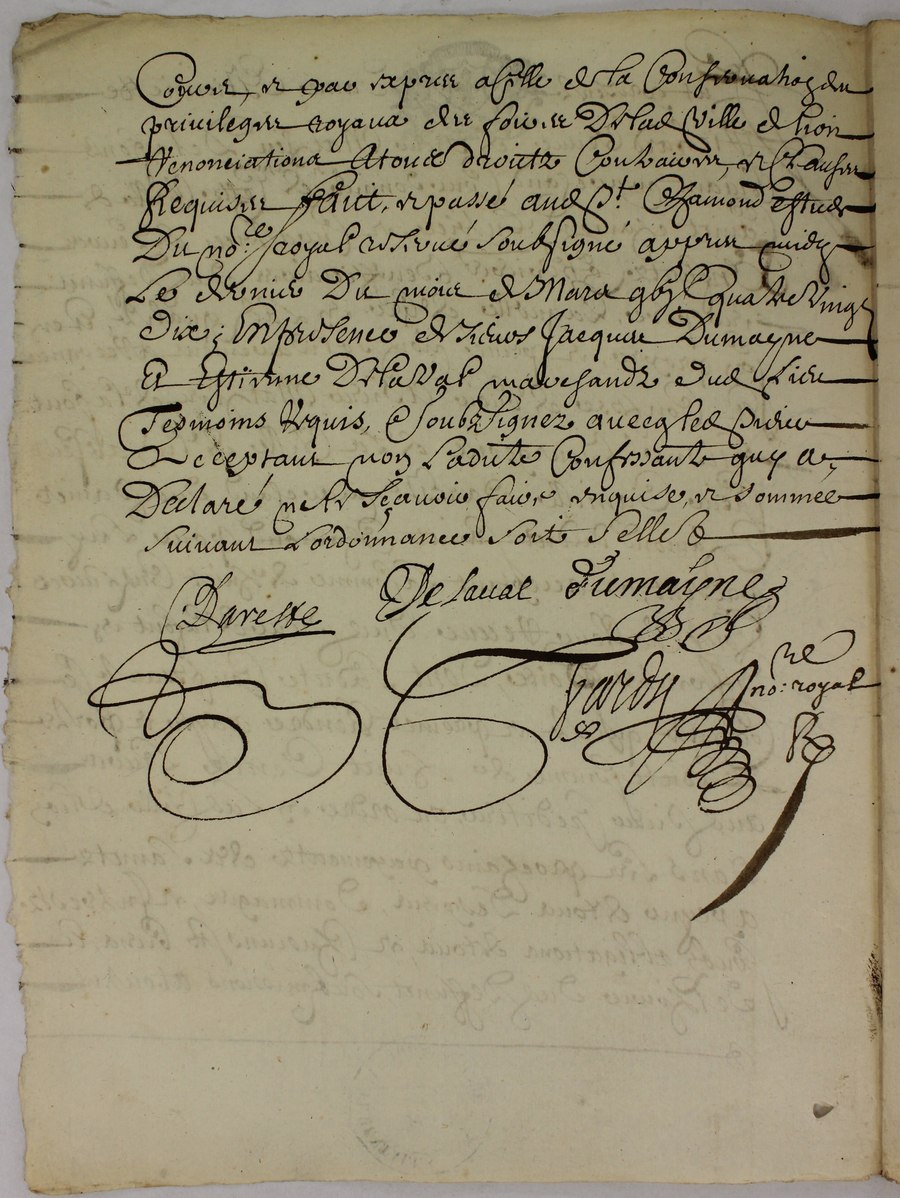 Cours, et par exprès a celle de la Conservation des
privileges royaux des foires Delad ville de lion
Renonciations A tous droictz Contraires, et Clauses
Requises faict, et passé aud St. Chamond estude
Du no:re royal reservé soubsigné appres midy
Le dernier Du mois de Mars gbjC quatre vingt
dix; En presence de sieurs Jacques Dumayne
Et Estienne Delaval marchandz dud lieu
Tesmoins requis, & soubzsignez avecq led sieur
Acceptant non Ladicte Confessante quy a
Declaré ne le sçavoir faire enquise, et sommée
suivant Lordonnance soit sellé
Dareste Delaval Dumaine
hardy no:re royal
R